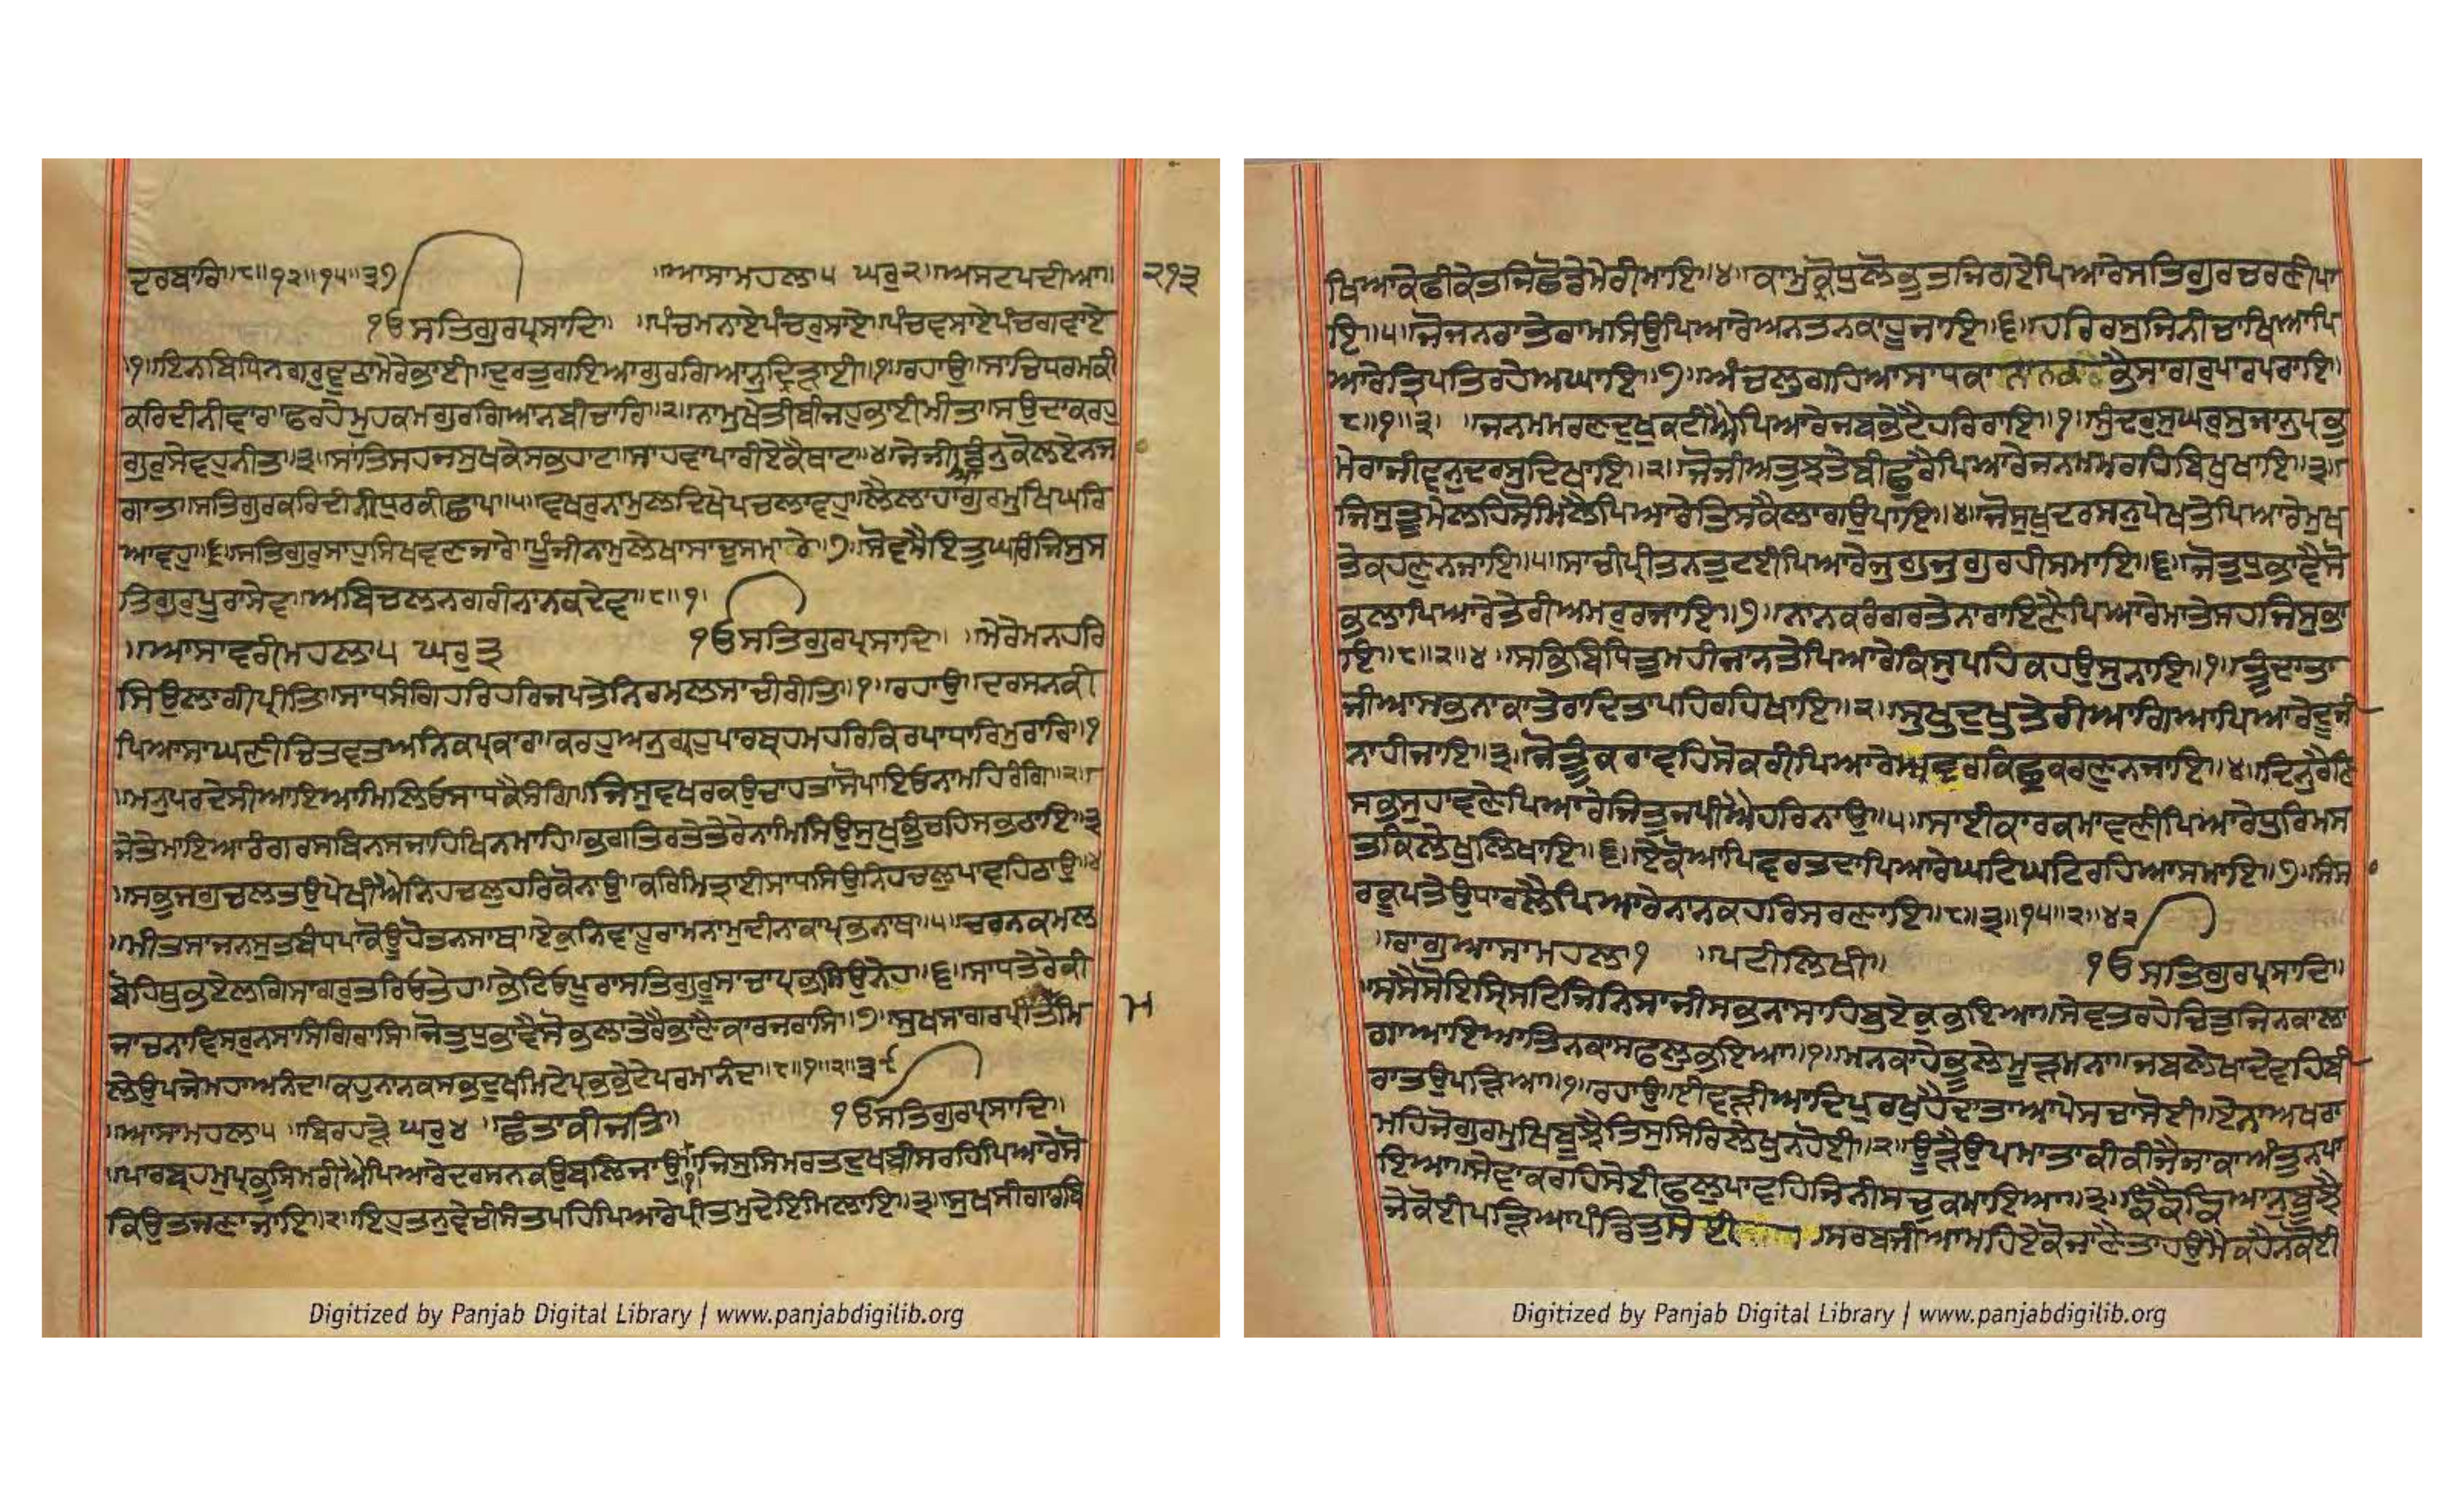 ਦਰਬਾਰਿ॥੮॥੧੨॥੧੫॥੩੭ ॥ਆਸਾਮਹਲਾ੫ ਘਰੁ੨॥ਅਸਟਪਦੀਆ॥ ੨੧੩
ੴਸਤਿਗੁਰਪ੍ਰਸਾਦਿ॥ ॥ਪੰਚਮਨਾਏਪੰਚਰੁਸਾਏ॥ਪੰਚਵਸਾਏਪੰਚਗਵਾਏ
॥੧॥ਇਨਬਿਧਿਨਗਰੁਵੁਠਾਮੇਰੇਭਾਈ॥ਦੁਰਤੁਗਇਆਗੁਰਗਿਆਨੁਦ੍ਰਿੜਾਈ॥੧॥ਰਹਾਉ॥ਸਾਚਿਧਰਮਕੀ
ਕਰਿਦੀਨੀਵਾਰਾ॥ਫਰਹੇਮੁਹਕਮਗੁਰਗਿਆਨਬੀਚਾਰਿ॥੨॥ਨਾਮੁਖੇਤੀਬੀਜਹੁਭਾਈਮੀਤ॥ਸਉਦਾਕਰਹੁ
ਗੁਰੁਸੇਵਹੁਨੀਤ॥੩॥ਸਾਂਤਿਸਹਜਸੁਖਕੇਸਭੁਹਾਟ॥ਸਾਹਵਾਪਾਰੀਏਕੈਥਾਟ॥੪॥ਜੇਜੀਆਡੰਨੁਕੋਲਏਨਜ
ਗਾਤ॥ਸਤਿਗੁਰਕਰਿਦੀਨੀਧੁਰਕੀਛਾਪ॥੫॥ਵਖਰੁਨਾਮੁਲਦਿਖੇਪਚਲਾਵਹੁ॥ਲੈਲਾਹਾਗੁਰਮੁਖਿਘਰਿ
ਆਵਹੁ॥੬॥ਸਤਿਗੁਰੁਸਾਹੁਸਿਖਵਣਜਾਰੇ॥ਪੂੰਜੀਨਾਮੁਲੇਖਾਸਾਚੁਸਮਾਰੇ॥੭॥ਸੋਵਸੈਇਤੁਘਰਿਜਿਸੁਸ
ਤਿਗੁਰੁਪੂਰਾਸੇਵ॥ਅਬਿਚਲਨਗਰੀਨਾਨਕਦੇਵ॥੮॥੧॥
॥ਆਸਾਵਰੀਮਹਲਾ੫ ਘਰੁ੩ ੴਸਤਿਗੁਰਪ੍ਰਸਾਦਿ॥ ॥ਮੇਰੇਮਨਹਰਿ
ਸਿਉਲਾਗੀਪ੍ਰੀਤਿ॥ਸਾਧਸੰਗਿਹਰਿਹਰਿਜਪਤੇਨਿਰਮਲਸਾਚੀਰੀਤਿ॥੧॥ਰਹਾਉ॥ਦਰਸਨਕੀ
ਪਿਆਸਾਘਣੀਚਿਤਵਤਅਨਿਕਪ੍ਰਕਾਰ॥ਕਰਹੁਅਨੁਗ੍ਰਹੁਪਾਰਬ੍ਰਹਮਹਰਿਕਿਰਪਾਧਾਰਿਮੁਰਾਰਿ॥੧
॥ਮਨੁਪਰਦੇਸੀਆਇਆਮਿਲਿਓਸਾਧਕੈਸੰਗਿ॥ਜਿਸੁਵਖਰਕਉਚਾਹਤਾਸੋਪਾਇਓਨਾਮਹਿਰੰਗਿ॥੨॥
ਜੇਤੇਮਾਇਆਰੰਗਰਸਬਿਨਸਜਾਹਿਖਿਨਮਾਹਿ॥ਭਗਤਿਰਤੇਤੇਰੇਨਾਮਿਸਿਉਸੁਖੁਭੁੰਚਹਿਸਭਠਾਇ॥੩
॥ਸਭੁਜਗੁਚਲਤਉਪੇਖੀਐਨਿਹਚਲੁਹਰਿਕੋਨਾਉ॥ਕਰਿਮਿਤ੍ਰਾਈਸਾਧਸਿਉਨਿਹਚਲੁਪਾਵਹਿਠਾਉ॥੪
॥ਮੀਤਸਾਜਨਸੁਤਬੰਧਪਾਕੋਊਹੋਤਨਸਾਥ॥ਏਕੁਨਿਵਾਹੂਰਾਮਨਾਮੁਦੀਨਾਕਾਪ੍ਰਭਨਾਥ॥੫॥ਚਰਨਕਮਲ
ਬੋਹਿਥੁਭਏਲਗਿਸਾਗਰੁਤਰਿਓਤੇਹ॥ਭੇਟਿਓਪੂਰਾਸਤਿਗੁਰੂਸਾਚਾਪ੍ਰਭਸਿਉਨੇਹ॥੬॥ਸਾਧਤੇਰੇਕੀ
ਜਾਚਨਾਵਿਸਰੁਨਸਾਸਿਗਿਰਾਸਿ॥ਜੋਤੁਧੁਭਾਵੈਸੋਭਲਾਤੇਰੈਭਾਣੈਕਾਰਜਰਾਸਿ॥੭॥ਸੁਖਸਾਗਰਪ੍ਰੀਤਮਮਿ
ਲੇਉਪਜੇਮਹਾਅਨੰਦ॥ਕਹੁਨਾਨਕਸਭਦੁਖਮਿਟੇਪ੍ਰਭਭੇਟੇਪਰਮਾਨੰਦ॥੮॥੧॥੨॥੩
॥ਆਸਾਮਹਲਾ੫ ॥ਬਿਰਹੜੇ ਘਰੁ੪ ॥ਛੰਤਾਕੀਜਤਿ॥ ੴਸਤਿਗੁਰਪ੍ਰਸਾਦਿ॥
॥ਪਾਰਬ੍ਰਹਮੁਪ੍ਰਭੁਸਿਮਰੀਐਪਿਆਰੇਦਰਸਨਕਉਬਲਿਜਾਉ॥੧॥ਜਿਸੁਸਿਮਰਤਦੁਖਬੀਸਰਹਿਪਿਆਰੇਸੋ
ਕਿਉਤਜਣਾਜਾਇ॥੨॥ਇਹੁਤਨੁਵੇਚੀਸੰਤਪਹਿਪਿਆਰੇਪ੍ਰੀਤਮੁਦੇਇਮਿਲਾਇ॥੩॥ਸੁਖਸੀਗਾਰਬਿ
ਖਿਆਕੇਫੀਕੇਤਜਿਛੋਡੇਮੇਰੀਮਾਇ॥੪॥ਕਾਮੁਕ੍ਰੋਧੁਲੋਭੁਤਜਿਗਏਪਿਆਰੇਸਤਿਗੁਰਚਰਣੀਪਾ
ਇ॥੫॥ਜੋਜਨਰਾਤੇਰਾਮਸਿਉਪਿਆਰੇਅਨਤਨਕਾਹੂਜਾਇ॥੬॥ਹਰਿਰਸੁਜਿਨੀਚਾਖਿਆਪਿ
ਆਰੇਤ੍ਰਿਪਤਿਰਹੇਅਘਾਇ॥੭॥ਅੰਚਲੁਗਹਿਆਸਾਧਕਾਨਾਨਕਭੈਸਾਗਰੁਪਾਰਪਰਾਇ॥
੮॥੧॥੩॥ ॥ਜਨਮਮਰਣਦੁਖੁਕਟੀਐਪਿਆਰੇਜਬਭੇਟੈਹਰਿਰਾਇ॥੧॥ਸੁੰਦਰੁਸੁਘਰੁਸੁਜਾਨੁਪ੍ਰਭੁ
ਮੇਰਾਜੀਵਨੁਦਰਸੁਦਿਖਾਇ॥੨॥ਜੋਜੀਅਤੁਝਤੇਬੀਛੁਰੇਪਿਆਰੇਜਨਮਮਰਹਿਬਿਖੁਖਾਇ॥੩॥
ਜਿਸੁਤੂਮੇਲਹਿਸੋਮਿਲੈਪਿਆਰੇਤਿਸਕੈਲਾਗਉਪਾਇ॥੪॥ਜੋਸੁਖੁਦਰਸਨੁਪੇਖਤੇਪਿਆਰੇਮੁਖ
ਤੇਕਹਣੁਨਜਾਇ॥੫॥ਸਾਚੀਪ੍ਰੀਤਨਤੁਟਈਪਿਆਰੇਜੁਗੁਜੁਗੁਰਹੀਸਮਾਇ॥੬॥ਜੋਤੁਧੁਭਾਵੈਸੋ
ਭਲਾਪਿਆਰੇਤੇਰੀਅਮਰੁਰਜਾਇ॥੭॥ਨਾਨਕਰੰਗਰਤੇਨਾਰਾਇਣੈਪਿਆਰੇਮਾਤੇਸਹਜਿਸੁਭਾ
ਇ॥੮॥੨॥੪॥ਸਭਿਬਿਧਿਤੁਮਹੀਜਾਨਤੇਪਿਆਰੇਕਿਸੁਪਹਿਕਹਉਸੁਨਾਇ॥੧॥ਤੂੰਦਾਤਾ
ਜੀਆਸਭਨਾਕਾਤੇਰਾਦਿਤਾਪਹਿਰਹਿਖਾਇ॥੨॥ਸੁਖੁਦੁਖੁਤੇਰੀਆਗਿਆਪਿਆਰੇਦੂਜੀ
ਨਾਹੀਜਾਇ॥੩॥ਜੋਤੂੰਕਰਾਵਹਿਸੋਕਰੀਪਿਆਰੇਅਵਰੁਕਿਛੁਕਰਣੁਨਜਾਇ॥੪॥ਦਿਨੁਰੈਣਿ
ਸਭਸੁਹਾਵਣੇਪਿਆਰੇਜਿਤੁਜਪੀਐਹਰਿਨਾਉ॥੫॥ਸਾਈਕਾਰਕਮਾਵਣੀਪਿਆਰੇਧੁਰਿਮਸ
ਤਕਿਲੇਖੁਲਿਖਾਇ॥੬॥ਏਕੋਆਪਿਵਰਤਦਾਪਿਆਰੇਘਟਿਘਟਿਰਹਿਆਸਮਾਇ॥੭॥ਸੰਸ
ਰਕੂਪਤੇਉਧਰਿਲੈਪਿਆਰੇਨਾਨਕਹਰਿਸਰਣਾਇ॥੮॥੩॥੧੫॥੨॥੪੨
॥ਰਾਗੁਆਸਾਮਹਲਾ੧ ॥ਪਟੀਲਿਖੀ॥ ੴਸਤਿਗੁਰਪ੍ਰਸਾਦਿ॥
॥ਸਸੈਸੋਇਸ੍ਰਿਸਟਿਜਿਨਿਸਾਜੀਸਭਨਾਸਾਹਿਬੁਏਕੁਭਇਆ॥ਸੇਵਤਰਹੇਚਿਤੁਜਿਨਕਾਲਾ
ਗਾਆਇਆਤਿਨਕਾਸਫਲੁਭਇਆ॥੧॥ਮਨਕਾਹੇਭੂਲੇਮੂੜਮਨਾ॥ਜਬਲੇਖਾਦੇਵਹਿਬੀ
ਰਾਤਉਪੜਿਆ॥੧॥ਰਹਾਉ॥ਈਵੜੀਆਦਿਪੁਰਖੁਹੈਦਾਤਾਆਪੇਸਚਾਸੋਈ॥ਏਨਾਅਖਰਾ
ਮਹਿਜੋਗੁਰਮੁਖਿਬੂਝੈਤਿਸੁਸਿਰਿਲੇਖੁਨਹੋਈ॥੨॥ਊੜੈਉਪਮਾਤਾਕੀਕੀਜੈਜਾਕਾਅੰਤੁਨਪਾ
ਇਆ॥ਸੇਵਾਕਰਹਿਸੇਈਫਲੁਪਾਵਹਿਜਿਨੀਸਚੁਕਮਾਇਆ॥੩॥ਙੰਙੈਙਿਆਨੁਬੂਝੈ
ਜੇਕੋਈਪੜਿਆਪੰਡਿਤੁਸੋਈ ॥ਸਰਬਜੀਆਮਹਿਏਕੋਜਾਣੈਤਾਹਉਮੈਕਹੈਨਕੋਈ
Digitized by Panjab Digital Library | www.panjabdigilib.org
Digitized by Panjab Digital Library | www.panjabdigilib.org